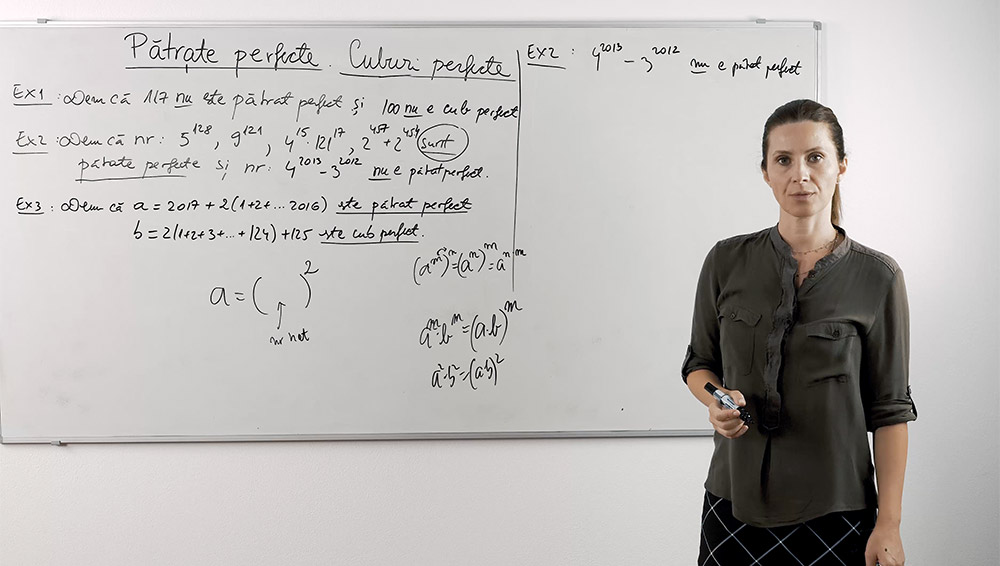 Pătrate perfecte. Cuburi perfecte
Ex1: Dem că 117 nu este pătrat perfect și 100 nu e cub perfect
Ex2: Dem că nr: 5¹²⁸, 9¹²¹, 4¹⁵·121¹⁷, 2⁴⁵⁷+2⁴⁵⁴ sunt
pătrate perfecte și nr: 4²⁰¹³ − 3²⁰¹² nu e pătrat perfect.
Ex3: Dem că a = 2017 + 2(1+2+...2016) este pătrat perfect
b = 2(1+2+3+...+124)+125 este cub perfect.
a = ( )²
nr nat
(aᵐ)ⁿ=(aⁿ)ᵐ=aⁿ·ᵐ
aᵐ·bᵐ=(a·b)ᵐ
a²·b²=(a·b)²
Ex2: 4²⁰¹³ − 3²⁰¹² nu e pătrat perfect